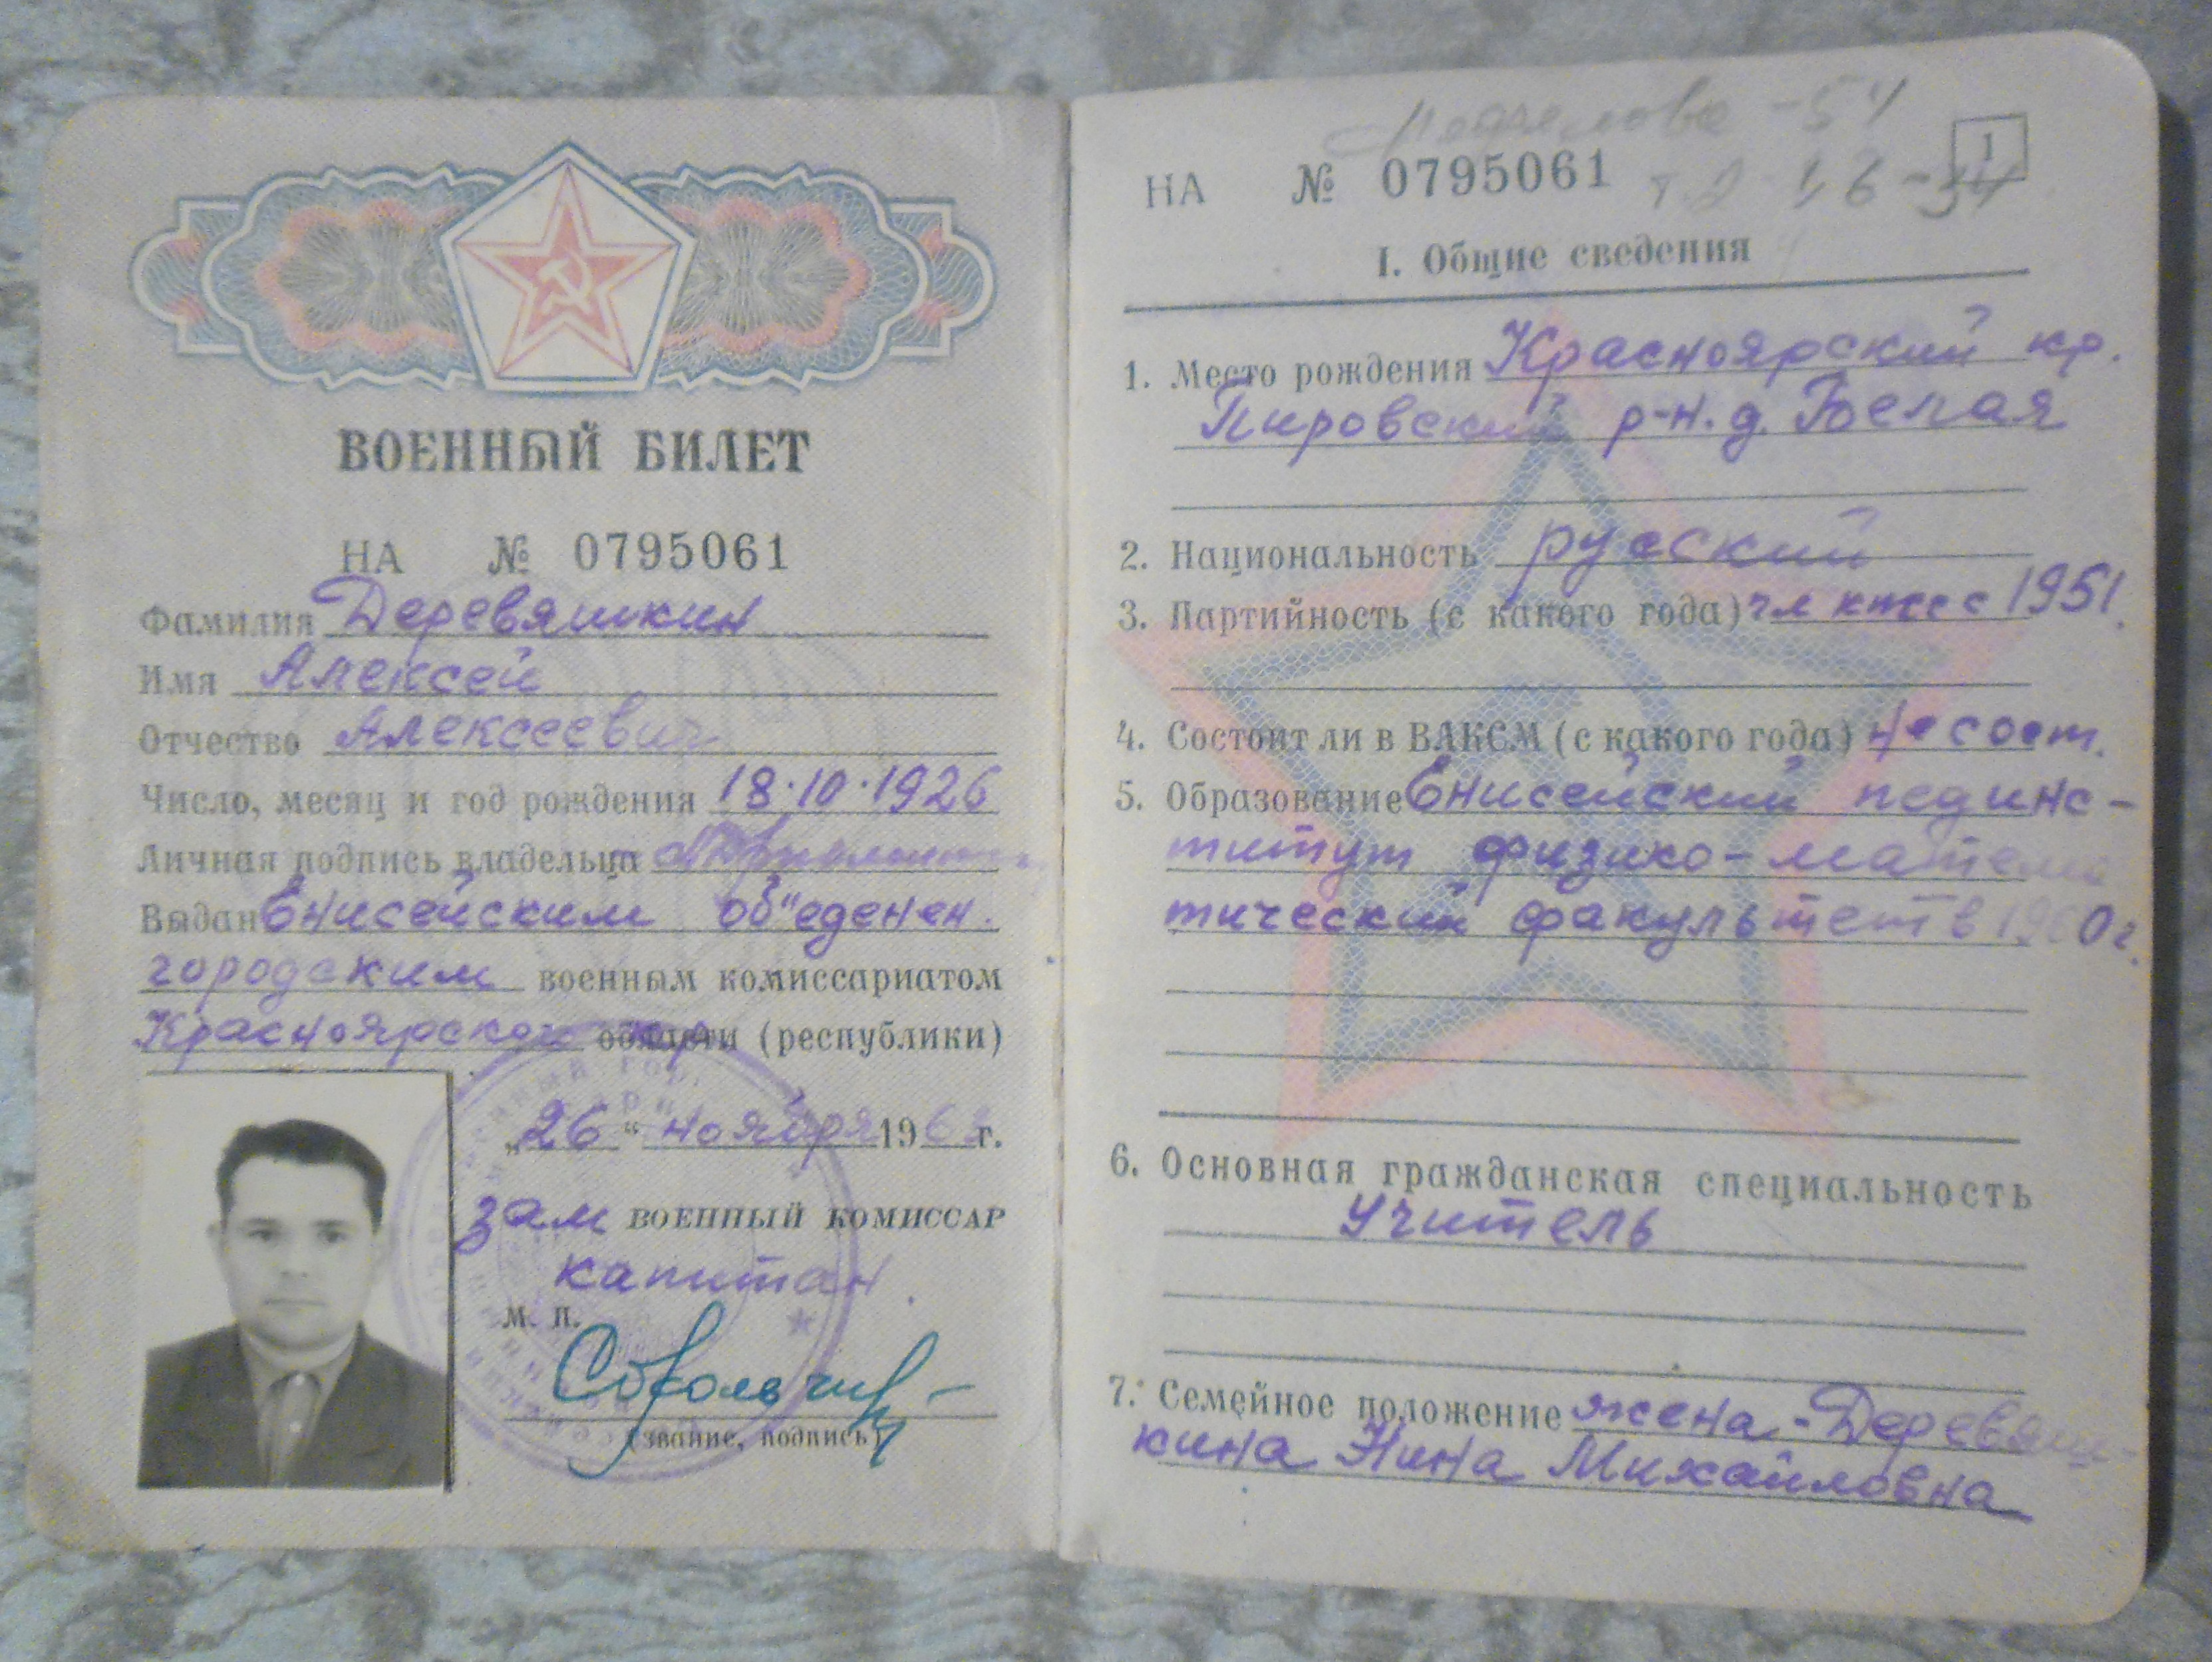 ВОЕННЫЙ БИЛЕТ
НА № 0795061
Фамилия Деревяшкин
Имя Алексей
Отчество Алексеевич
Число, месяц и год рождения 18·10·1926
Личная подпись владельца
Выдан Енисейским об"еденен.
городским военным комиссариатом
Красноярского кр области (республики)
„26“ ноября 196 г.
зам ВОЕННЫЙ КОМИССАР
капитан.
М. П.
(звание, подпись)
1
НА № 0795061
I. Общие сведения
1. Место рождения Красноярский кр.
Пировский р-н. д. Белая
2. Национальность русский
3. Партийность (с какого года) чл кпсс с 1951.
4. Состоит ли в ВЛКСМ (с какого года) не сост.
5. Образование Енисейский пединс-
титут физико-матема
тический факультет в 1960 г.
6. Основная гражданская специальность
учитель
7. Семейное положение жена - Деревяш-
кина Нина Михайловна